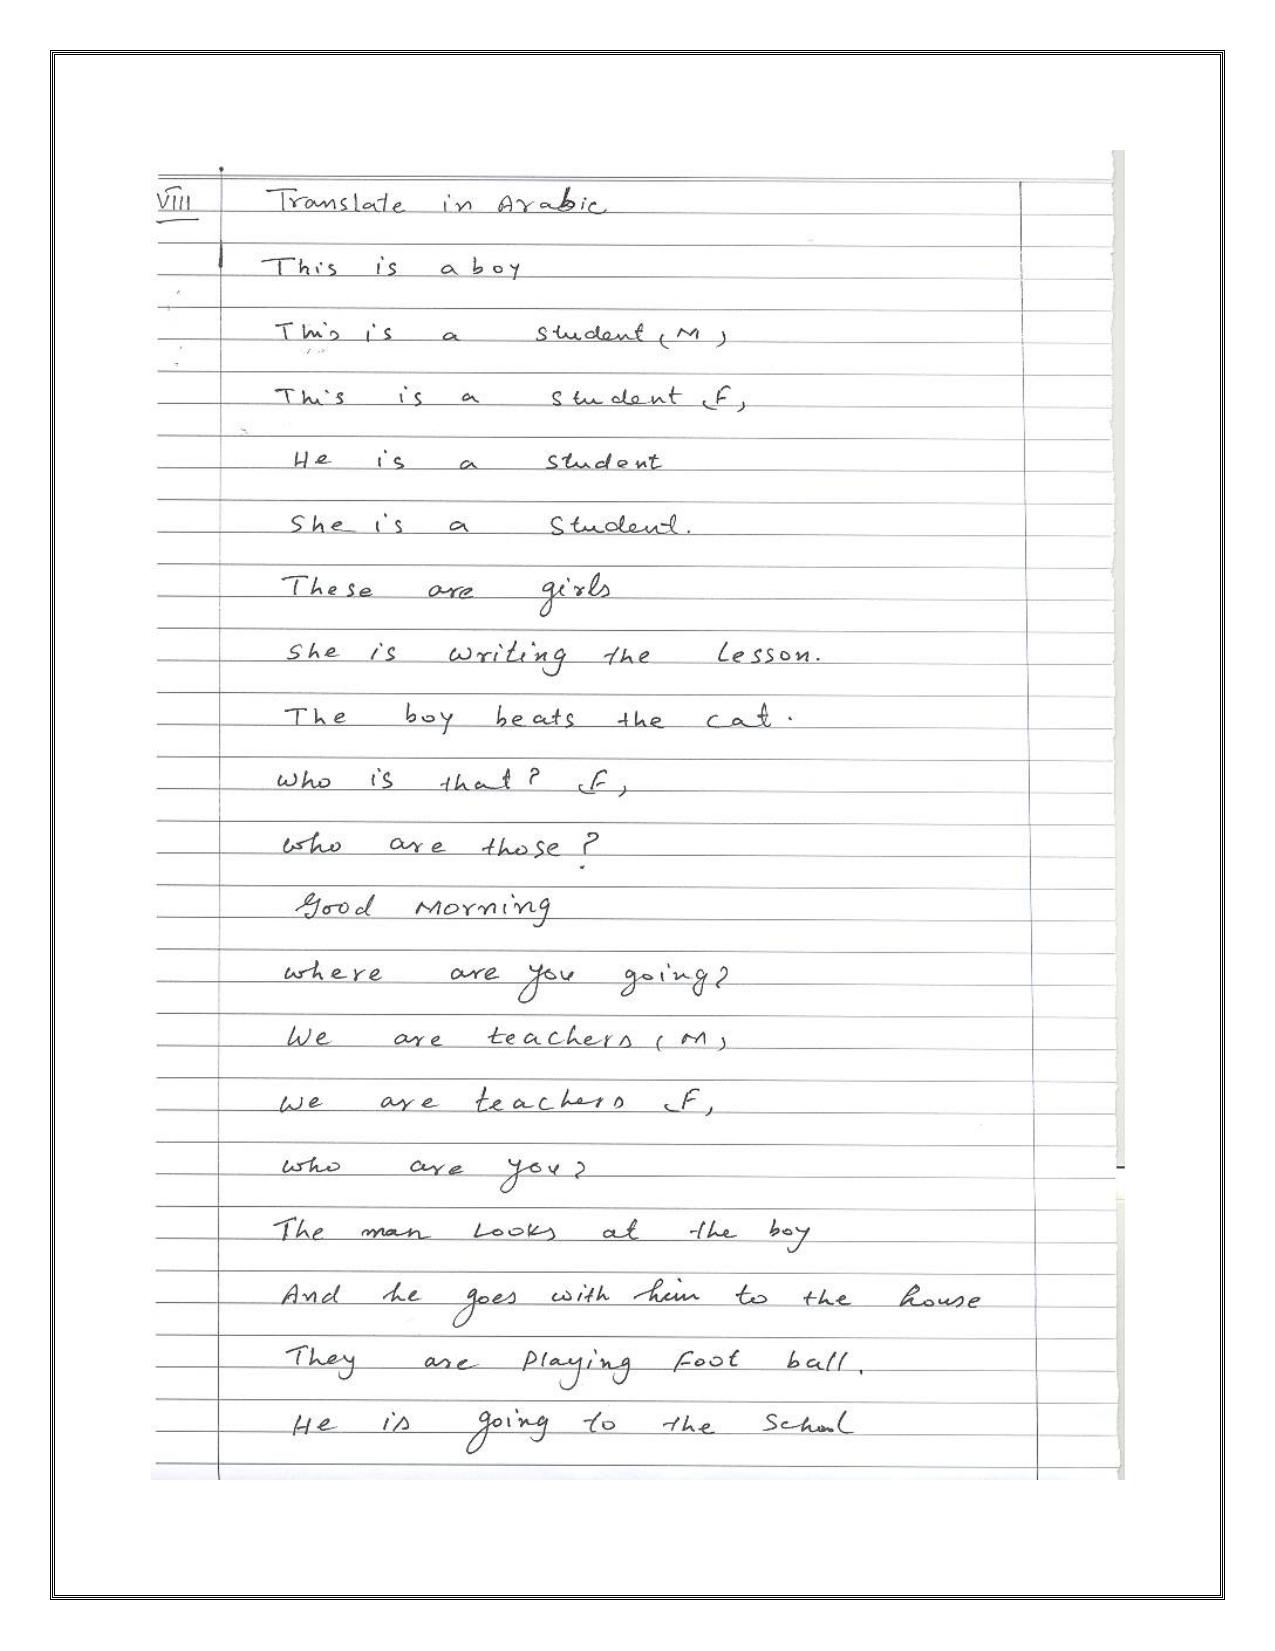 VIII Translate in Arabic
This is a boy
This is a student (M)
This is a student (F)
He is a student
She is a student.
These are girls
She is writing the Lesson.
The boy beats the cat.
Who is that? (F)
who are those?
Good Morning
where are you going?
We are teachers (M)
we are teachers (F)
who are you?
The man Looks at the boy
And he goes with him to the house
They are Playing Foot ball.
He is going to the School